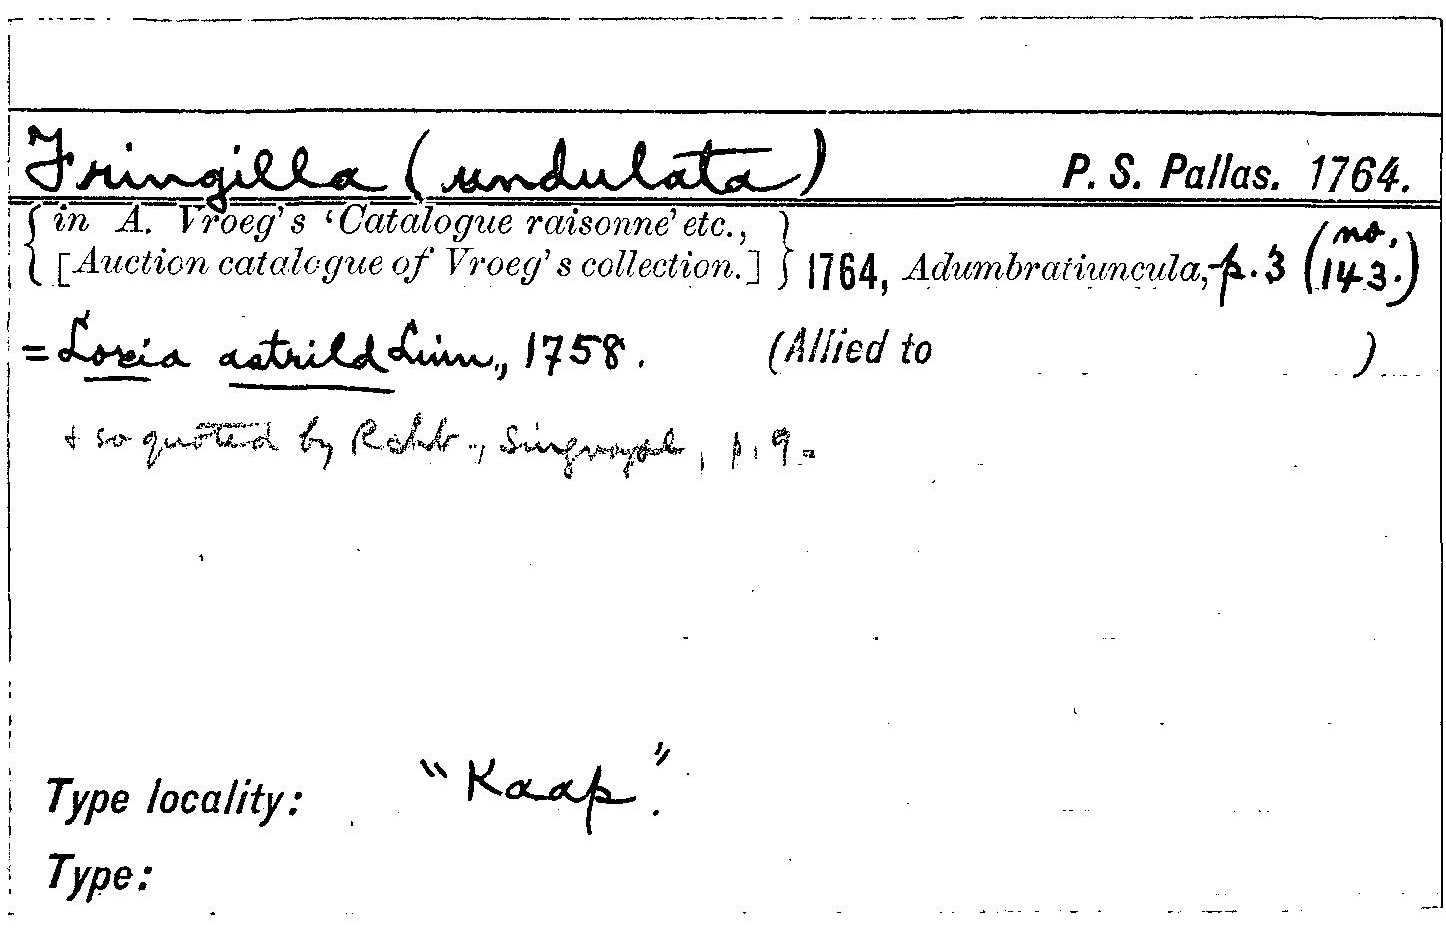 Fringilla (undulata) P. S. Pallas. 1764.
{ in A. Vroeg's 'Catalogue raisonné' etc.,
[Auction catalogue of Vroeg's collection.] } 1764, Adumbratiuncula, p. 3 (no. 143.)
= Loxia astrild Linn., 1758. (Allied to )
+ so quoted by , p. 9.
Type locality: "Kaap".
Type: